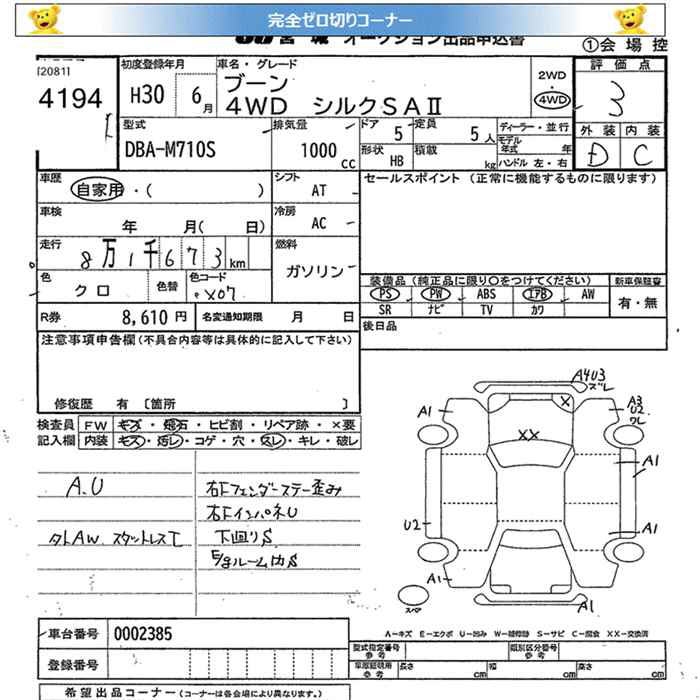 完全ゼロ切りコーナー
JU宮城 オークション出品申込書
①会場控
[2081]
4194
初度登録年月
H30 6月
車名・グレード
ブーン
4WD シルクSAⅡ
2WD
・
4WD
評価点
3
外装 内装
D C
型式
DBA-M710S
排気量
1000 cc
ドア 5
定員 5人
形状 HB
積載 kg
ディーラー・並行
モデル年式 年
ハンドル 左・右
車歴
自家用・( )
シフト
AT
セールスポイント (正常に機能するものに限ります)
車検
年 月( 日)
冷房
AC
走行
8万1千673km
燃料
ガソリン
色
クロ
色替
色コード
X07
装備品(純正品に限り○をつけてください)
PS PW ABS エアB AW
SR ナビ TV カワ
新車保証書
有・無
R券 8,610円
名変通知期限 月 日
後日品
注意事項申告欄(不具合内容等は具体的に記入して下さい)
修復歴 有〔箇所 〕
検査員記入欄
FW キズ・飛石・ヒビ割・リペア跡・×要
内装 キズ・汚レ・コゲ・穴・スレ・キレ・破レ
A.U
外AW スタットレス
右Fフェンダーステー歪み
右FインパネU
下廻りS
E/gルーム内S
A4U3
ズレ
A1
A3
U2
ワレ
X
XX
A1
U2
A1
A1
A1
スペア
A-キズ E-エクボ U-凹み W-補修跡 S-サビ C-腐食 XX-交換済
車台番号 0002385
登録番号
型式指定番号
参考
類別区分番号
参考
車庫証明用
参考
長さ cm
幅 cm
高さ cm
希望出品コーナー(コーナーは各会場により異なります。)